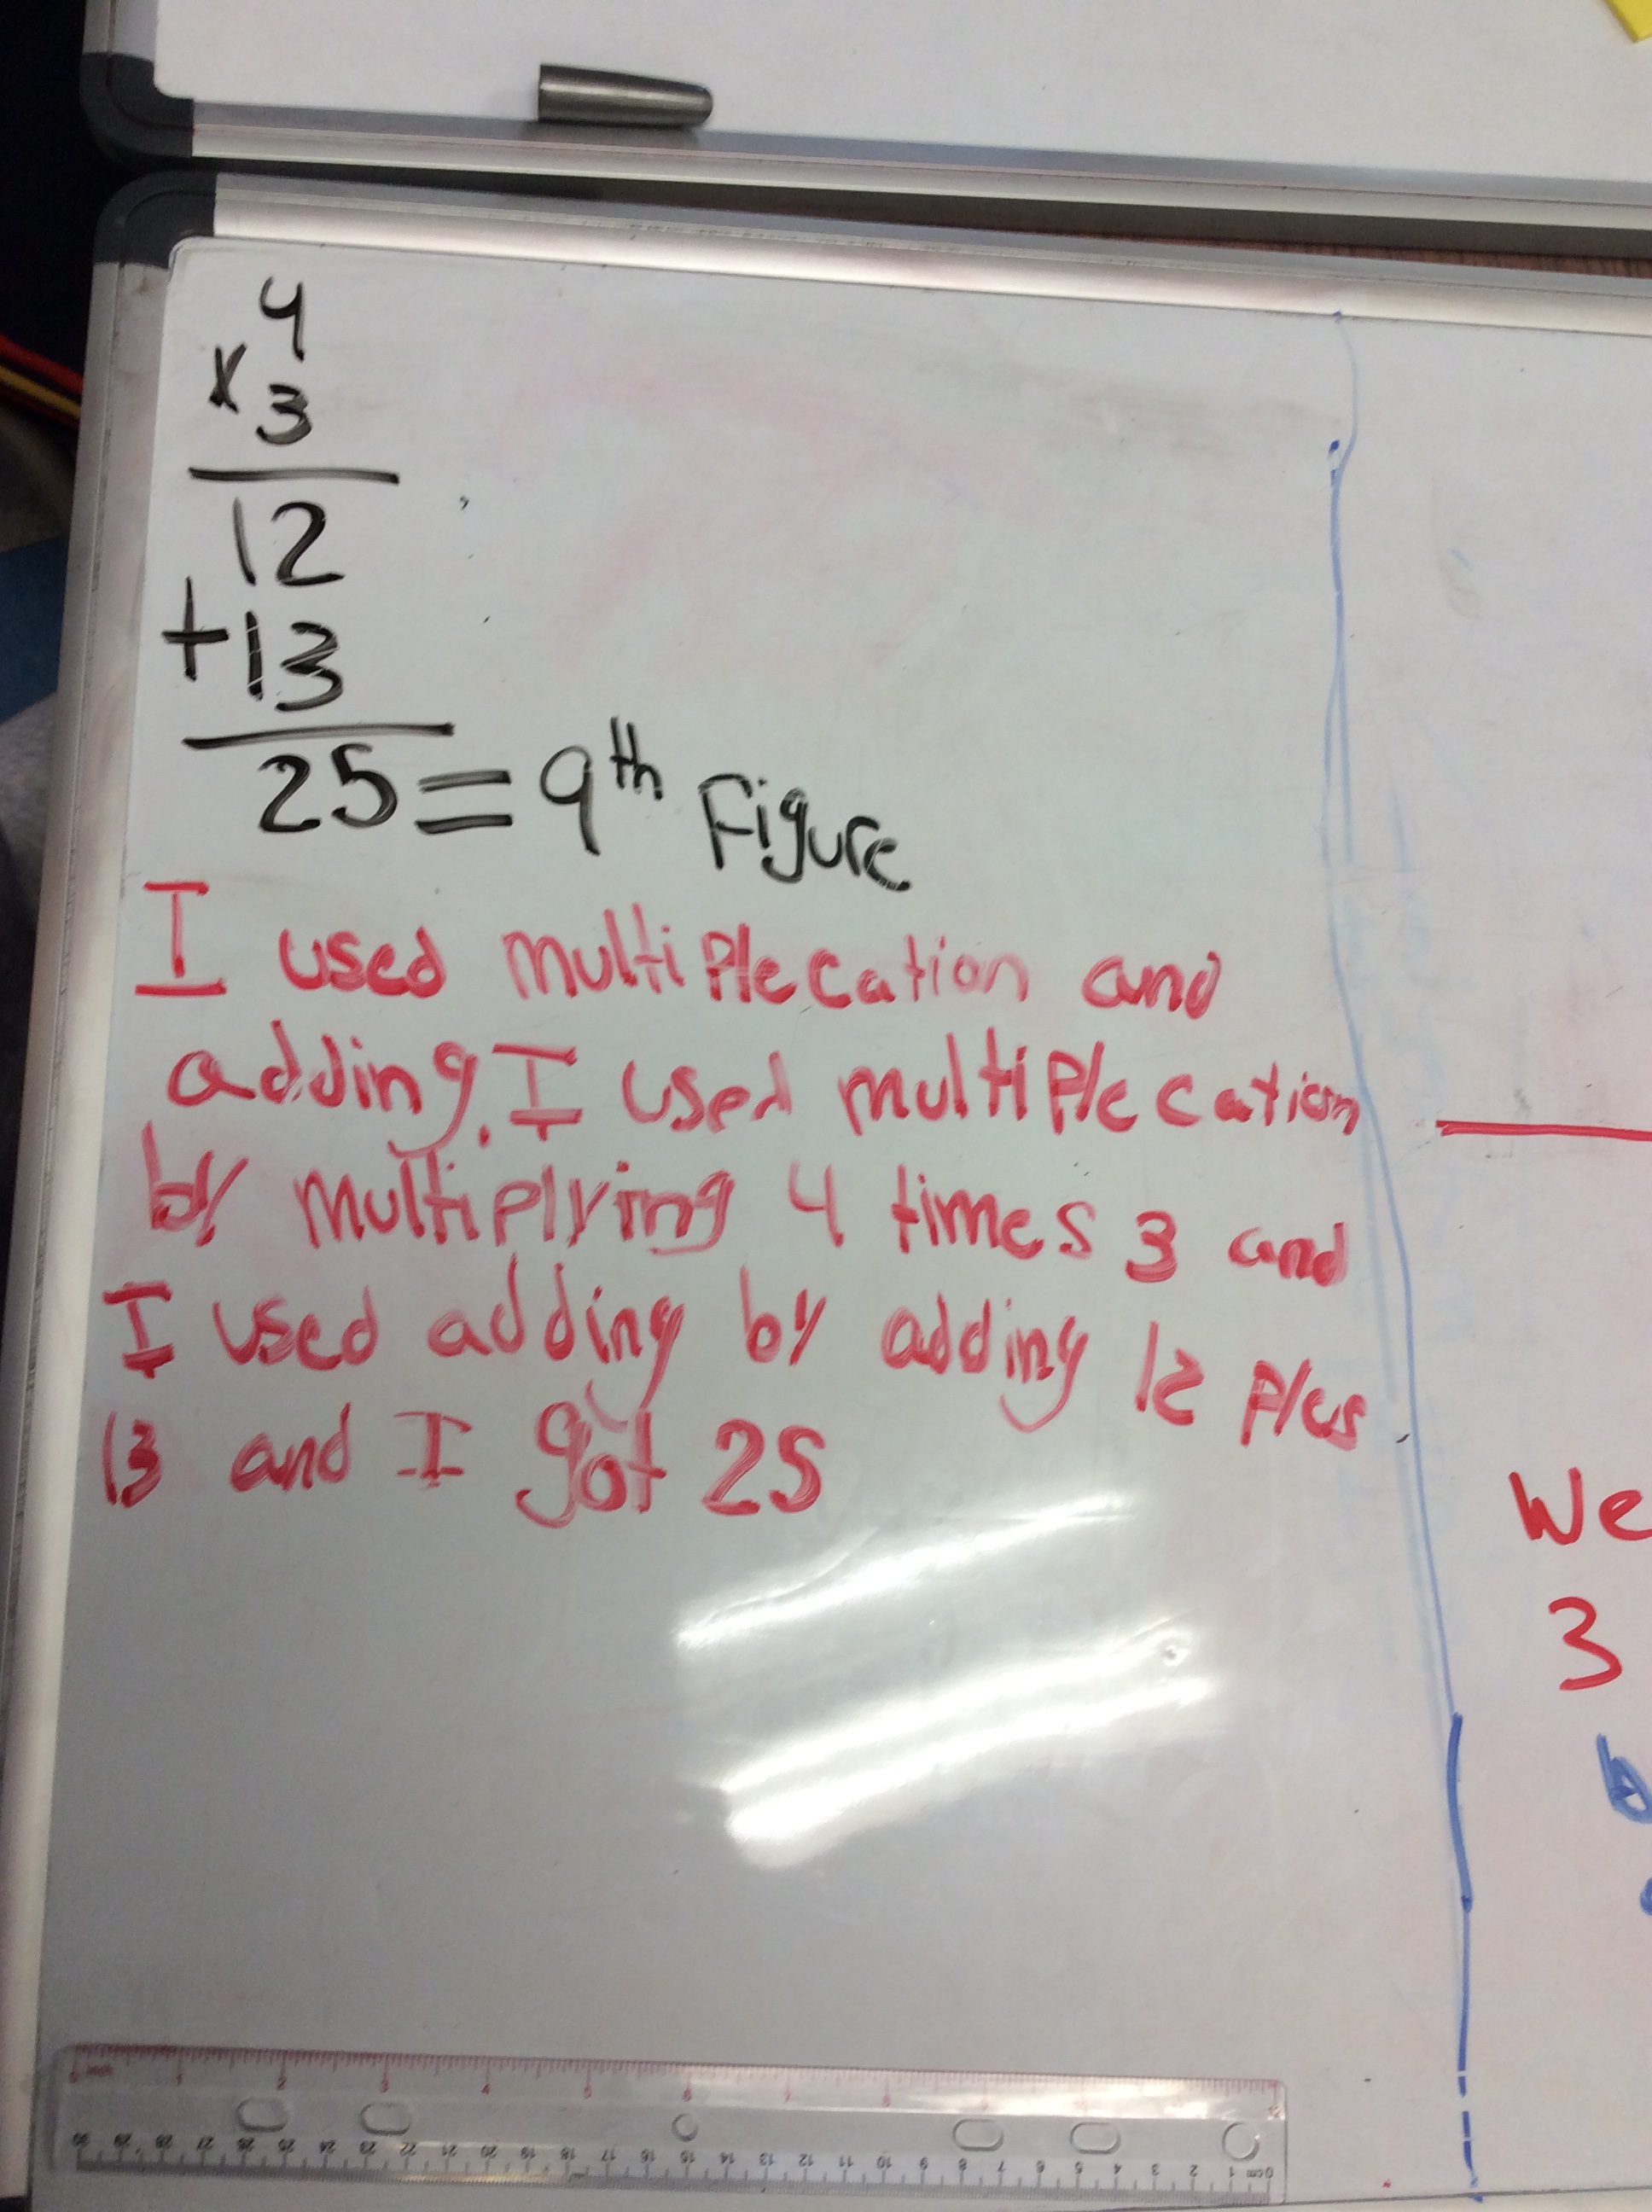 4
x 3
12
+13
25 = 9th Figure
I used multiplecation and
adding. I used multiplecation
by multiplying 4 times 3 and
I used adding by adding 12 plus
13 and I got 25
We
3
b